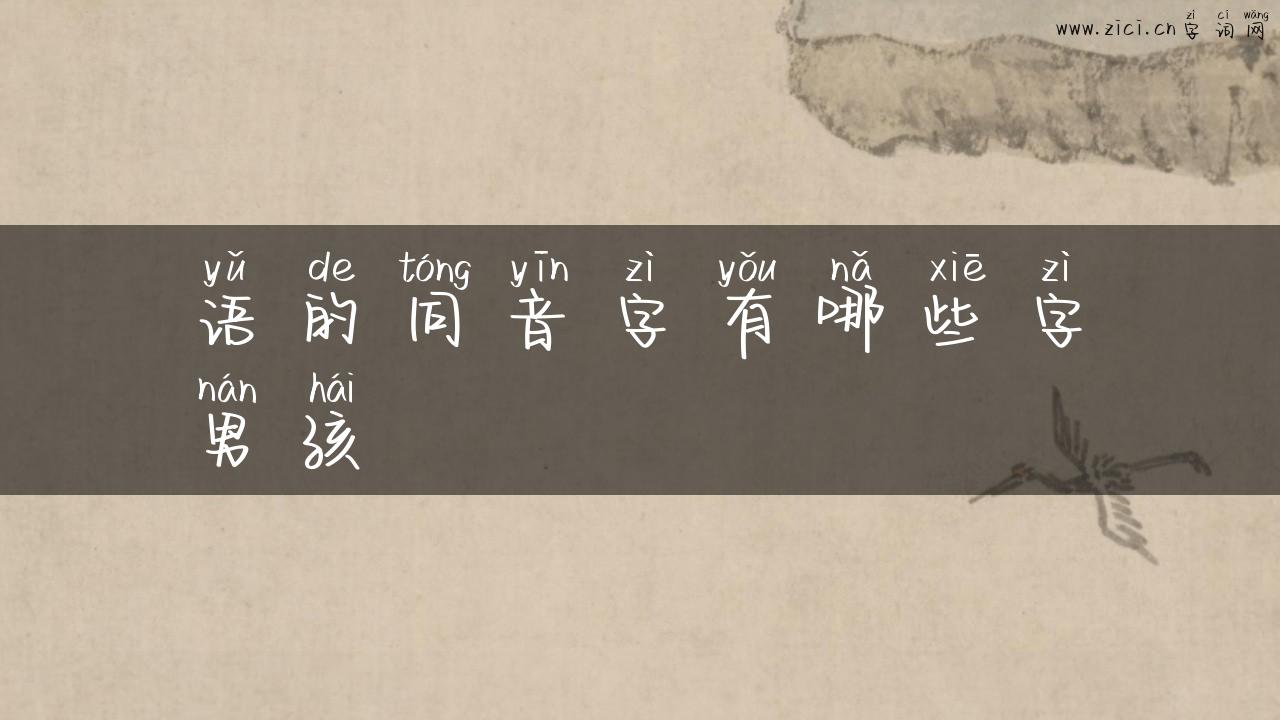 zì cí wǎng
www.zici.cn 字 词 网
yǔ de tóng yīn zì yǒu nǎ xiē zì
语 的 同 音 字 有 哪 些 字
nán hái
男 孩